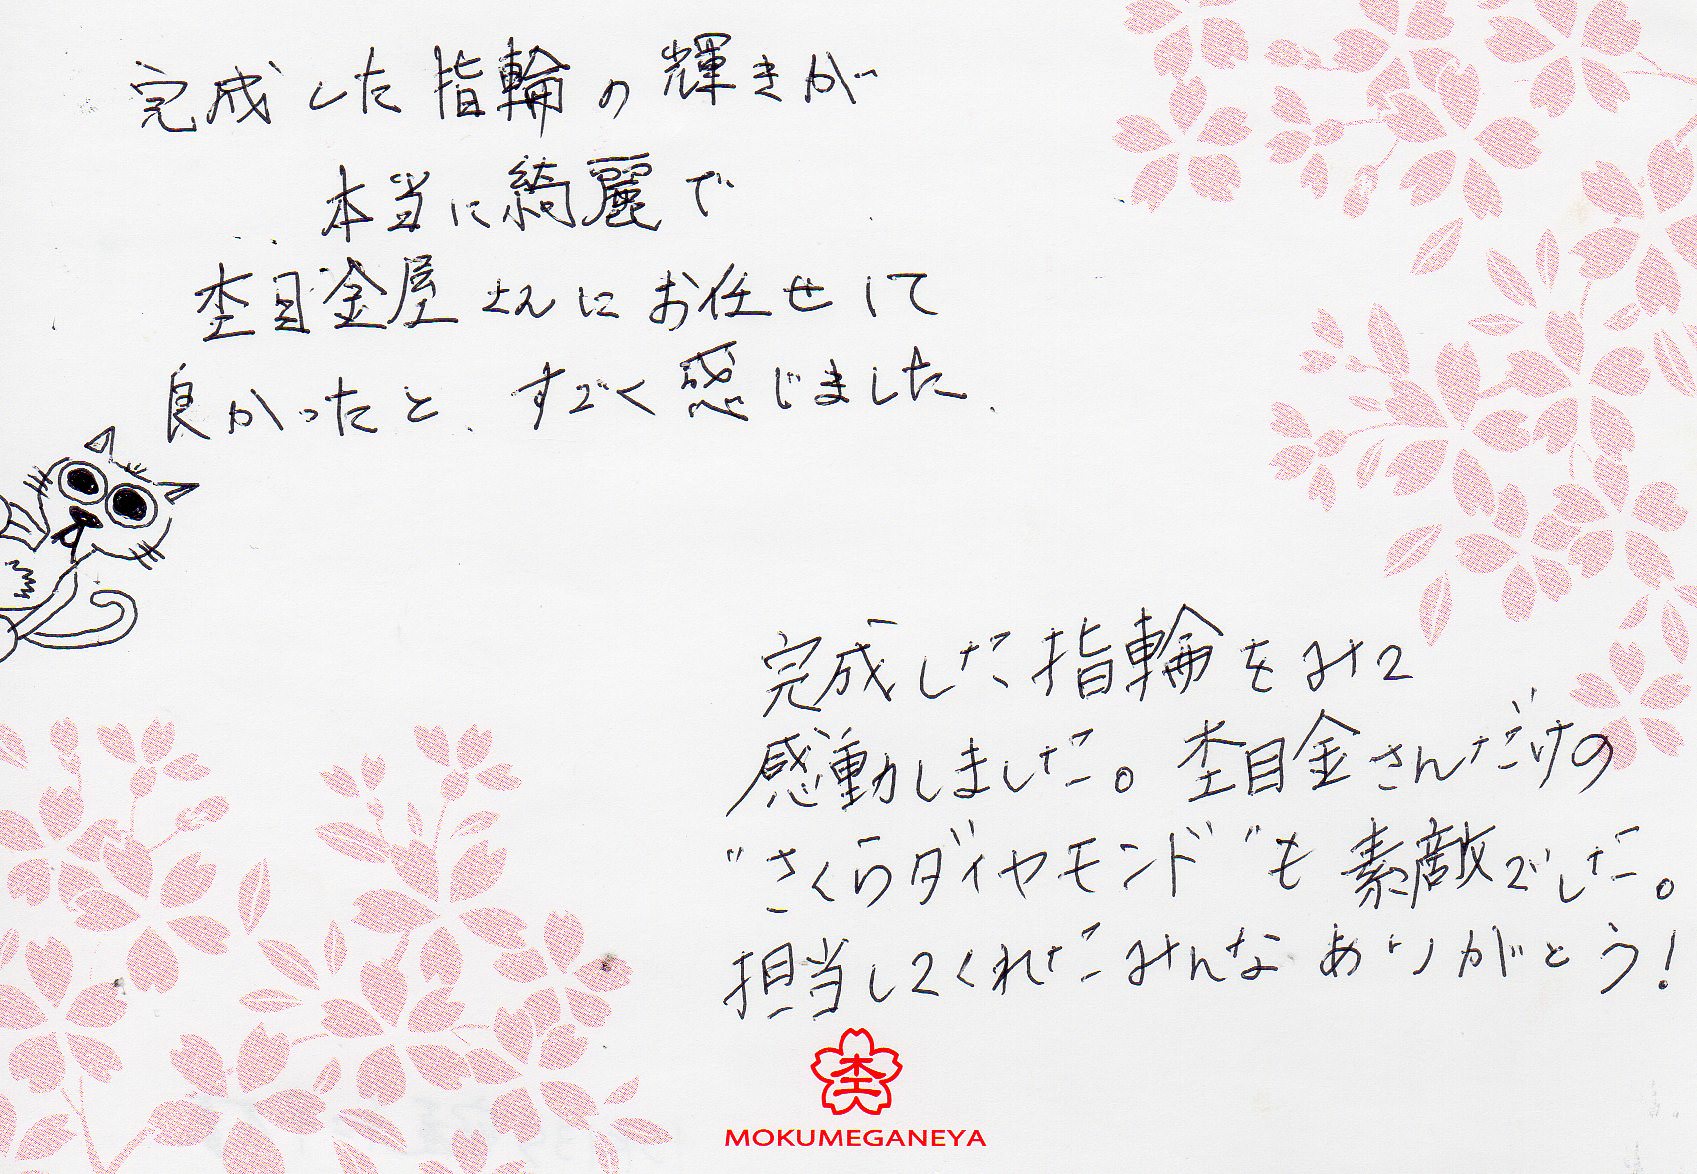 完成した指輪の輝きが
本当に綺麗で
杢目金屋さんにお任せして
良かったと、すごく感じました、
完成した指輪をみて
感動しました。杢目金さんだけの
"さくらダイヤモンド"も素敵でした。
担当してくれたみんなありがとう!
杢
MOKUMEGANEYA